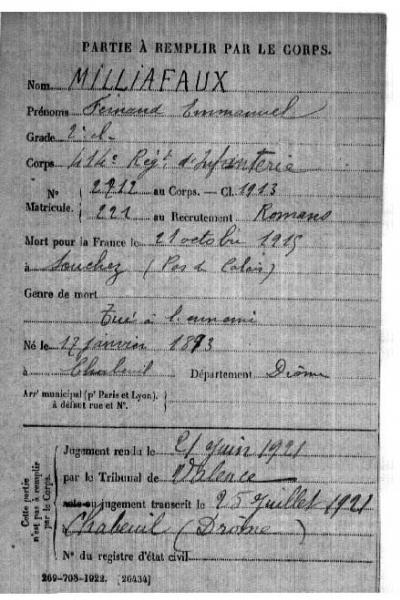 PARTIE À REMPLIR PAR LE CORPS.
Nom MILLIAFAUX
Prénoms Fernand Emmanuel
Grade 2e cl.
Corps 414e Régt. d'Infanterie
N° 2712 au Corps. — Cl. 1913
Matricule. 221 au Recrutement Romans
Mort pour la France le 21 octobre 1915
à Souchez (Pas de Calais)
Genre de mort
Tué à l'ennemi
Né le 17 Janvier 1893
à Chabeuil Département Drôme
Arrt municipal (pr Paris et Lyon),
à défaut rue et N°.
Cette partie
n'est pas à remplir
par le Corps.
Jugement rendu le 21 Juin 1921
par le Tribunal de Valence
jugement transcrit le 25 Juillet 1921
Chabeuil (Drôme)
N° du registre d'état civil
269-708-1922. [26434]